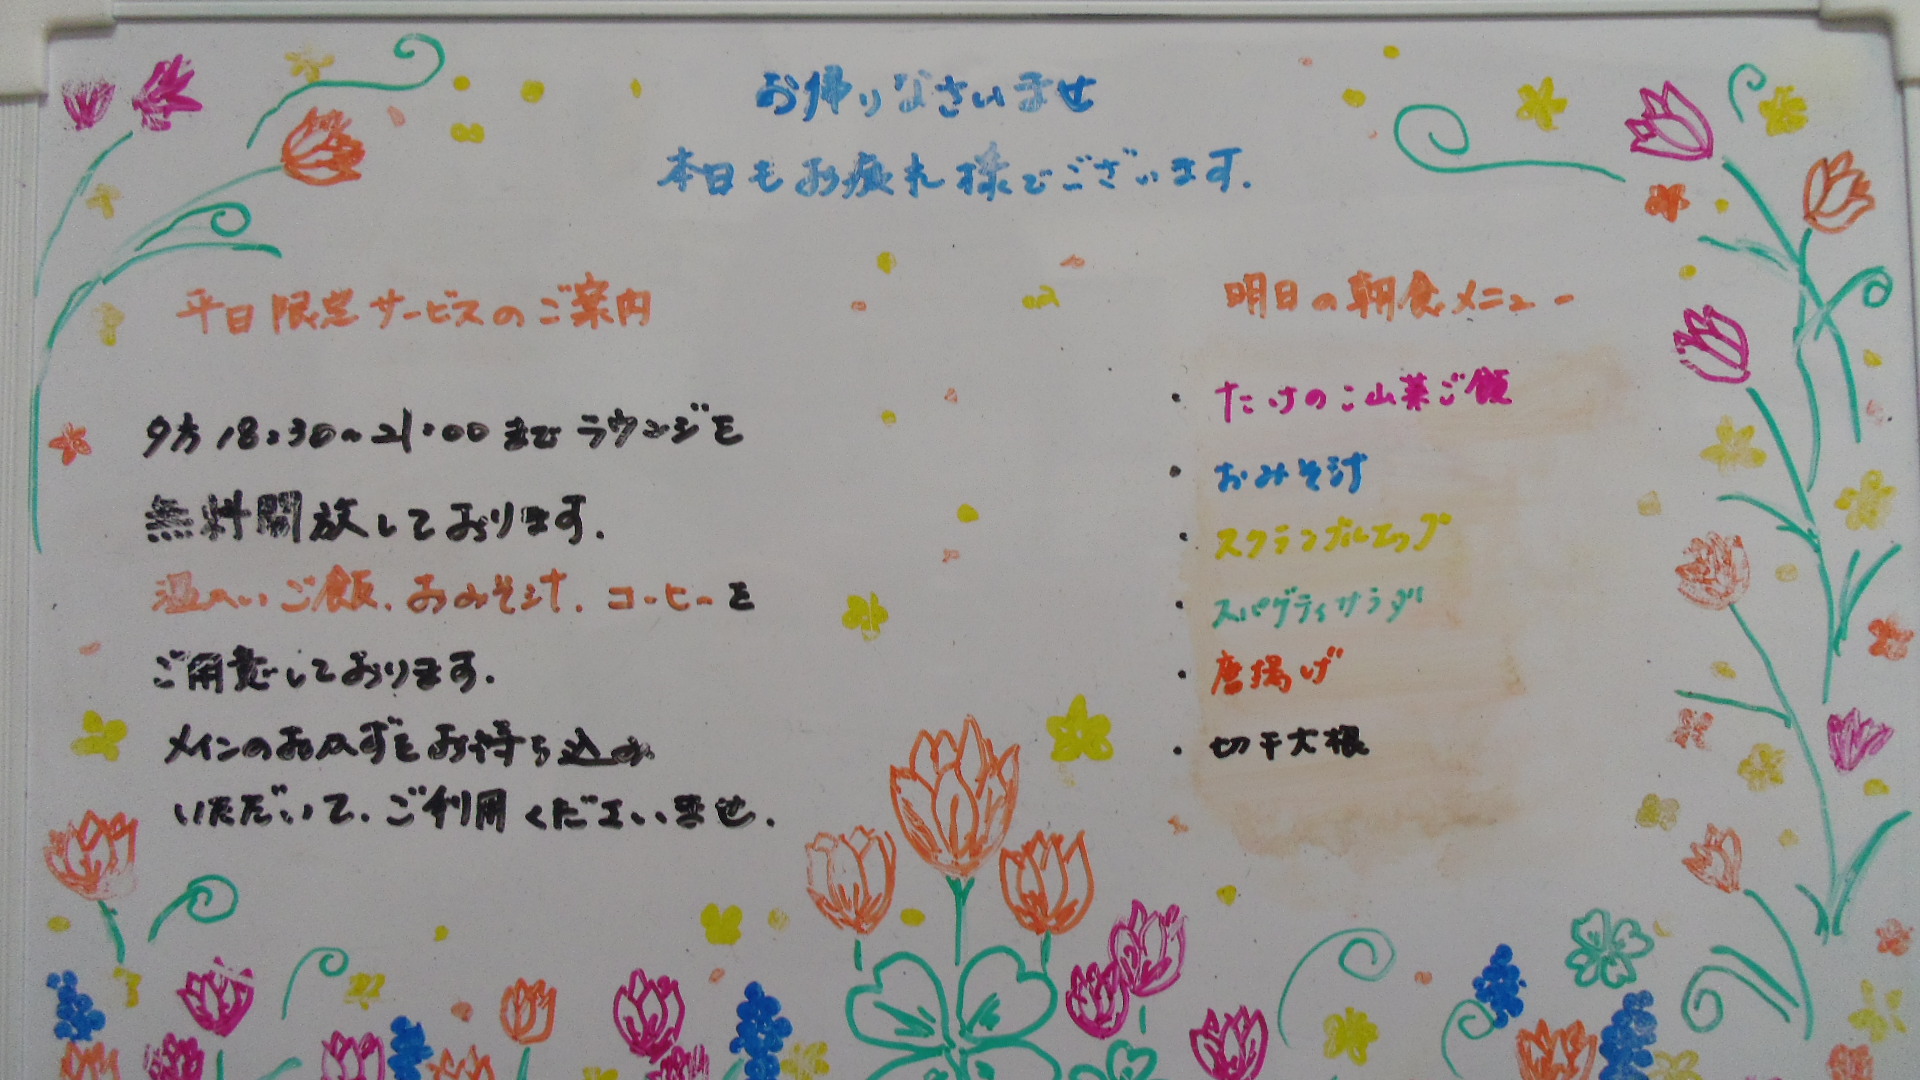 お帰りなさいませ
本日もお疲れ様でございます.
平日限定サービスのご案内
夕方18:30~21:00までラウンジを
無料開放しております.
温かいご飯.おみそ汁.コーヒーを
ご用意しております.
メインのおかずをお持ち込み
いただいて.ご利用くださいませ.
明日の朝食メニュー
・たけのこ山菜ご飯
・おみそ汁
・スクランブルエッグ
・スパゲティサラダ
・唐揚げ
・切干大根